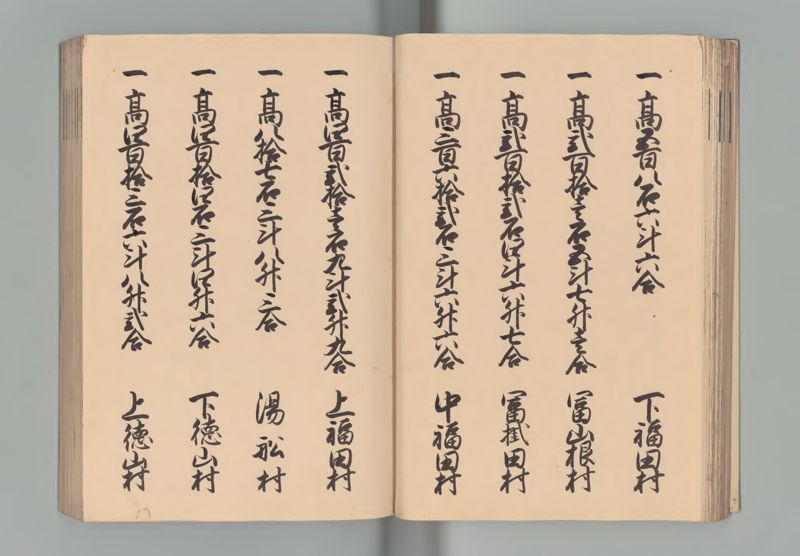 一 高五百八石六斗六合 下福田村
一 高弐百拾壱石五斗七升壱合 冨山根村
一 高弐百拾弐石四斗六升七合 冨掛田村
一 高三百六拾弐石三斗六升六合 中福田村
一 高四百弐拾壱石九斗弐升九合 上福田村
一 高八拾七石三斗八升三合 湯舩村
一 高四百拾四石三斗四升六合 下徳山村
一 高四百拾三石六斗八升弐合 上徳山村